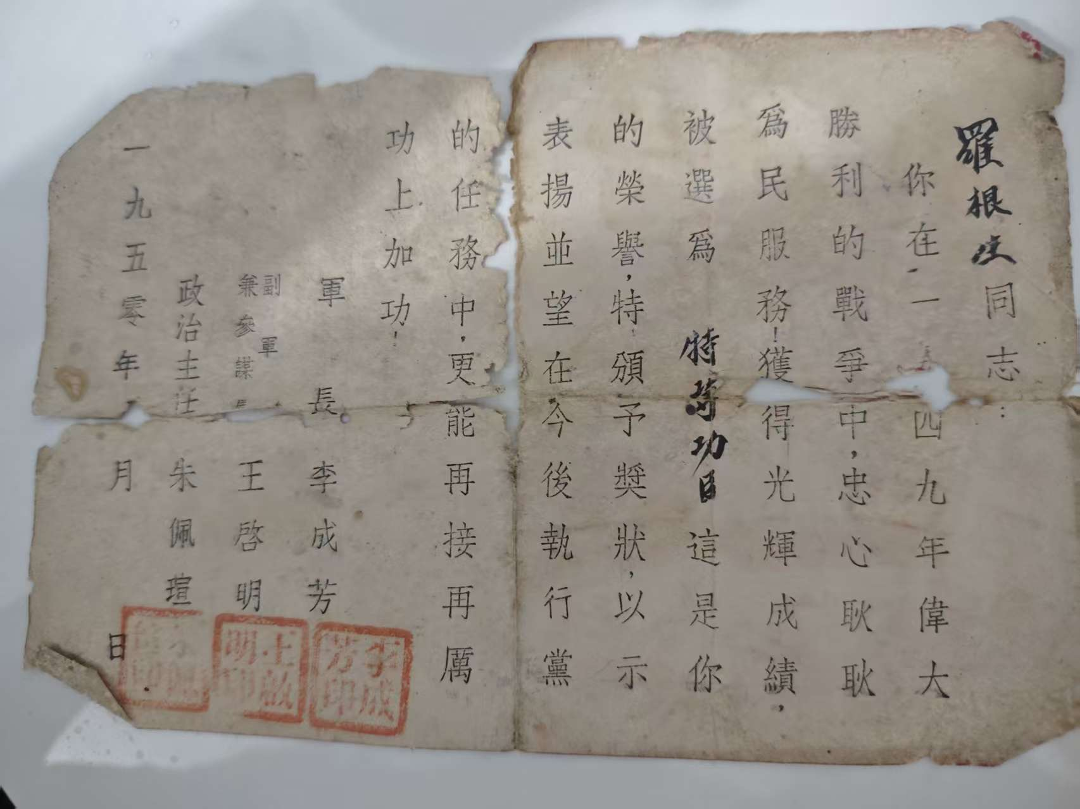 羅根生同志：
你在一四九年偉大
勝利的戰爭中，忠心耿耿
爲民服務！獲得光輝成績，
被選爲 特等功臣 這是你
的榮譽，特頒予獎狀，以示
表揚並望在今後執行黨
的任務中，更能再接再厲
功上加功！
軍長 李成芳
副軍
兼參謀長 王啓明
政治主任 朱佩瑄
一九五零年 月 日
李成芳印
王啟明印